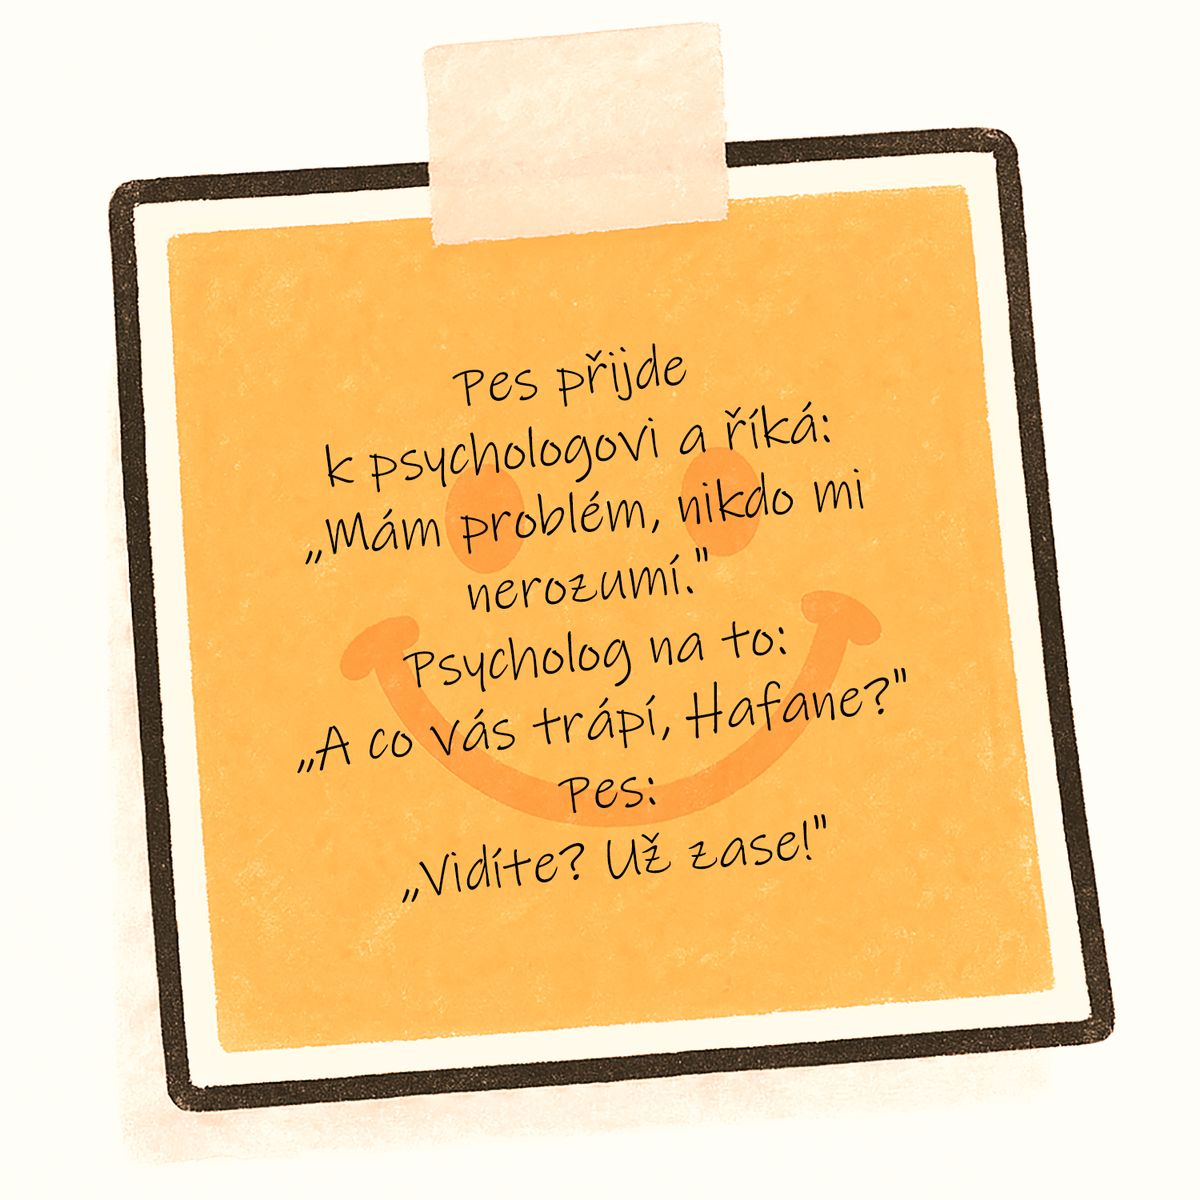 Pes přijde
k psychologovi a říká:
„Mám problém, nikdo mi
nerozumí."
Psycholog na to:
„A co vás trápí, Hafane?"
Pes:
„Vidíte? Už zase!"